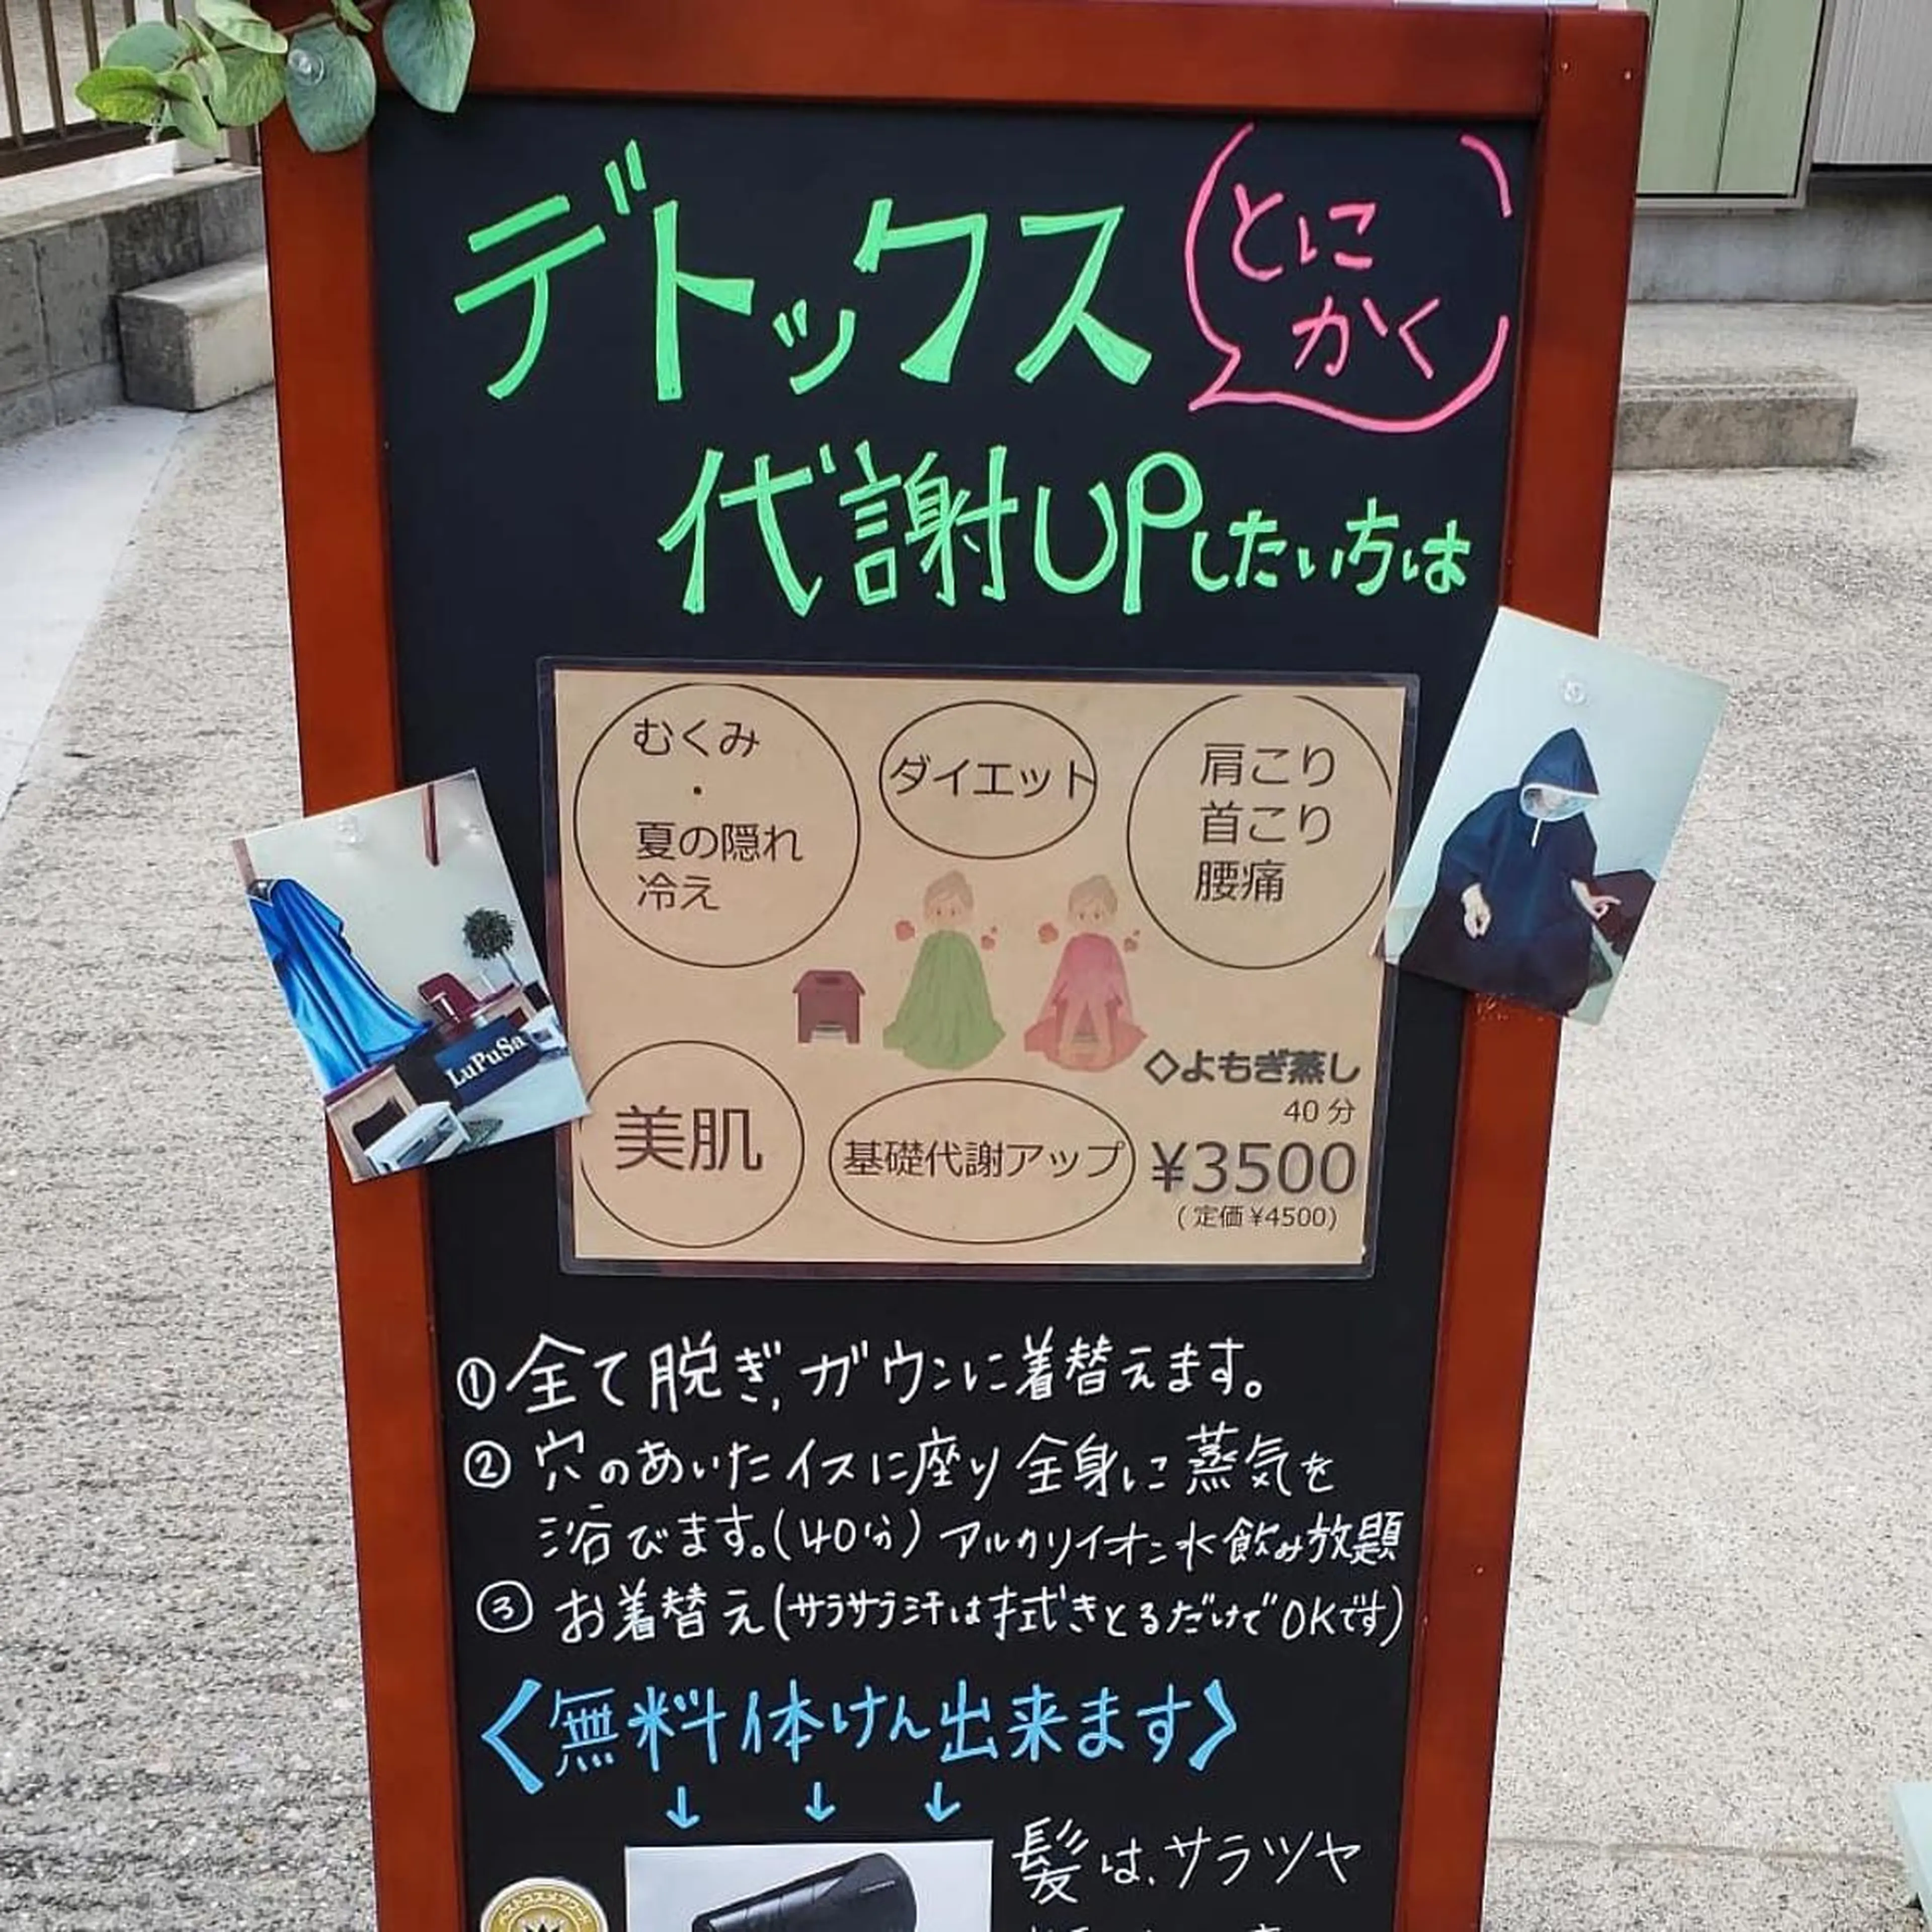 デトックス
とに
かく
代謝UPしたい方は
むくみ
・
夏の隠れ
冷え
ダイエット
肩こり
首こり
腰痛
LuPuSa
◇よもぎ蒸し
40分
¥3500
(定価¥4500)
美肌
基礎代謝アップ
①全て脱ぎ,ガウンに着替えます。
②穴のあいたイスに座り全身に蒸気を
浴びます。(40分)アルカリイオン水飲み放題
③お着替え(サラサラ汗は拭きとるだけでOKです)
〈無料体けん出来ます〉
↓ ↓ ↓
髪は、サラツヤ
ベストコスメアワード